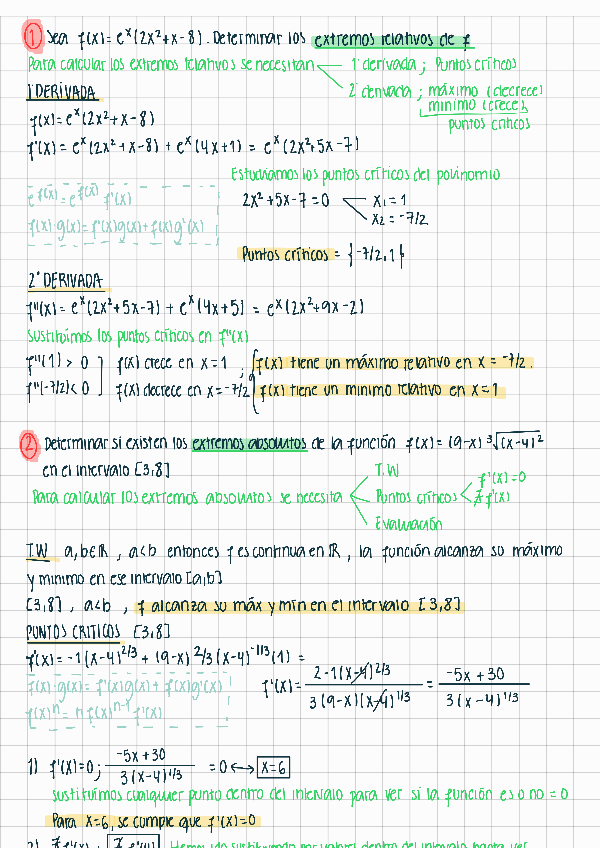 ① Sea f(x) = eˣ(2x²+x-8). Determinar los extremos relativos de f
Para calcular los extremos relativos se necesitan 1ª derivada ; Puntos críticos
2ª derivada ; máximo (decrece)
mínimo (crece)
puntos críticos
1ª DERIVADA
f(x) = eˣ(2x²+x-8)
f'(x) = eˣ(2x²+x-8) + eˣ(4x+1) = eˣ(2x²+5x-7)
Estudiamos los puntos críticos del polinomio
e^f(x) = e^f(x) · f'(x)
f(x)·g(x) = f'(x)g(x)+f(x)g'(x)
2x²+5x-7=0 x₁=1
x₂=-7/2
Puntos críticos = {-7/2,1}
2ª DERIVADA
f''(x) = eˣ(2x²+5x-7) + eˣ(4x+5) = eˣ(2x²+9x-2)
Sustituimos los puntos críticos en f''(x)
f''(1) > 0 f(x) crece en x=1 ; f(x) tiene un máximo relativo en x=-7/2.
f''(-7/2)<0 f(x) decrece en x=-7/2 f(x) tiene un mínimo relativo en x=1
② Determinar si existen los extremos absolutos de la función f(x)=(9-x) ³√(x-4)²
en el intervalo [3,8]
Para calcular los extremos absolutos se necesita T.W
Puntos críticos f'(x)=0
∄ f'(x)
Evaluación
T.W a,b∈ℝ , a<b entonces f es continua en ℝ , la función alcanza su máximo
y mínimo en ese intervalo [a,b]
[3,8] , a<b , f alcanza su máx y mín en el intervalo [3,8]
PUNTOS CRITICOS [3,8]
f'(x) = -1(x-4)^2/3 + (9-x) 2/3 (x-4)^-1/3 (1) =
f(x)·g(x) = f'(x)g(x) + f(x)g'(x)
f(x)ⁿ = n f(x)ⁿ⁻¹ f'(x)
f'(x) = 2-1(x-4)^2/3 / 3(9-x)(x-4)^1/3 = -5x+30 / 3(x-4)^1/3
1) f'(x)=0; -5x+30 / 3(x-4)^1/3 = 0 ↔ x=6
sustituímos cualquier punto dentro del intervalo para ver si la función es 0 no = 0
Para x=6, se cumple que f'(x)=0